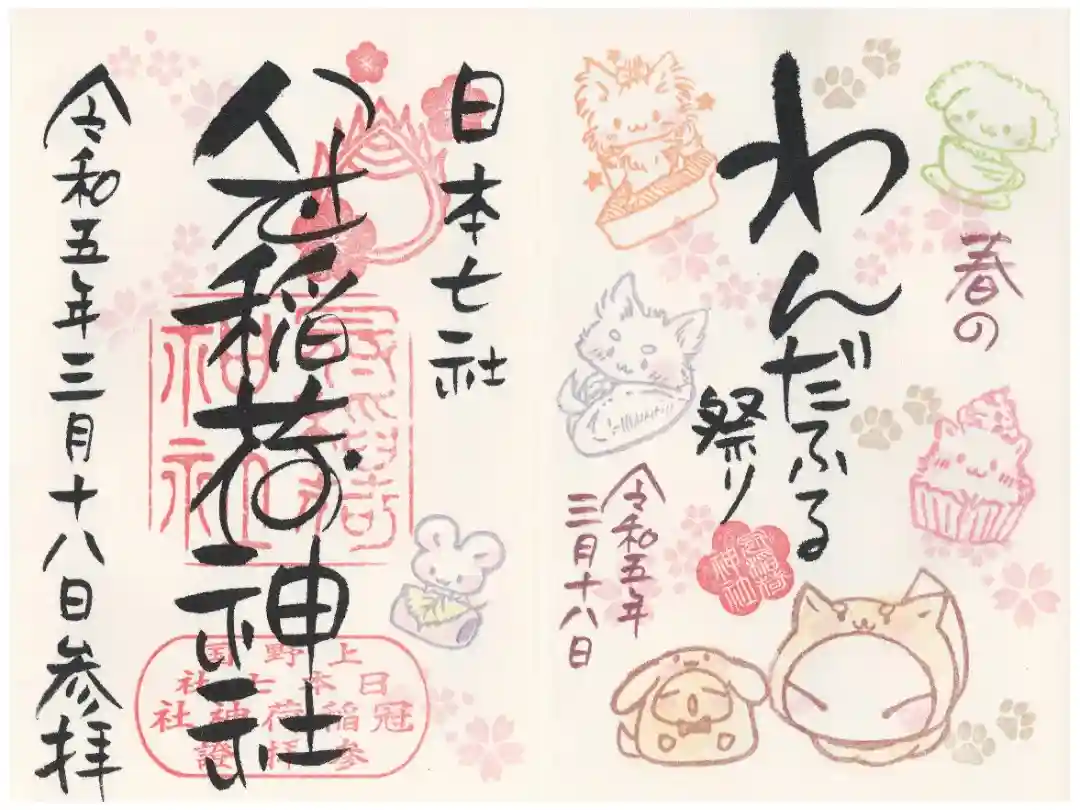 春の
わんだふる
祭り
令和五年
三月十八日
冠稲荷
神社
日本七社
冠稲荷神社
上野国
日本七社
冠稲荷神社
参拝證
令和五年三月十八日参拝